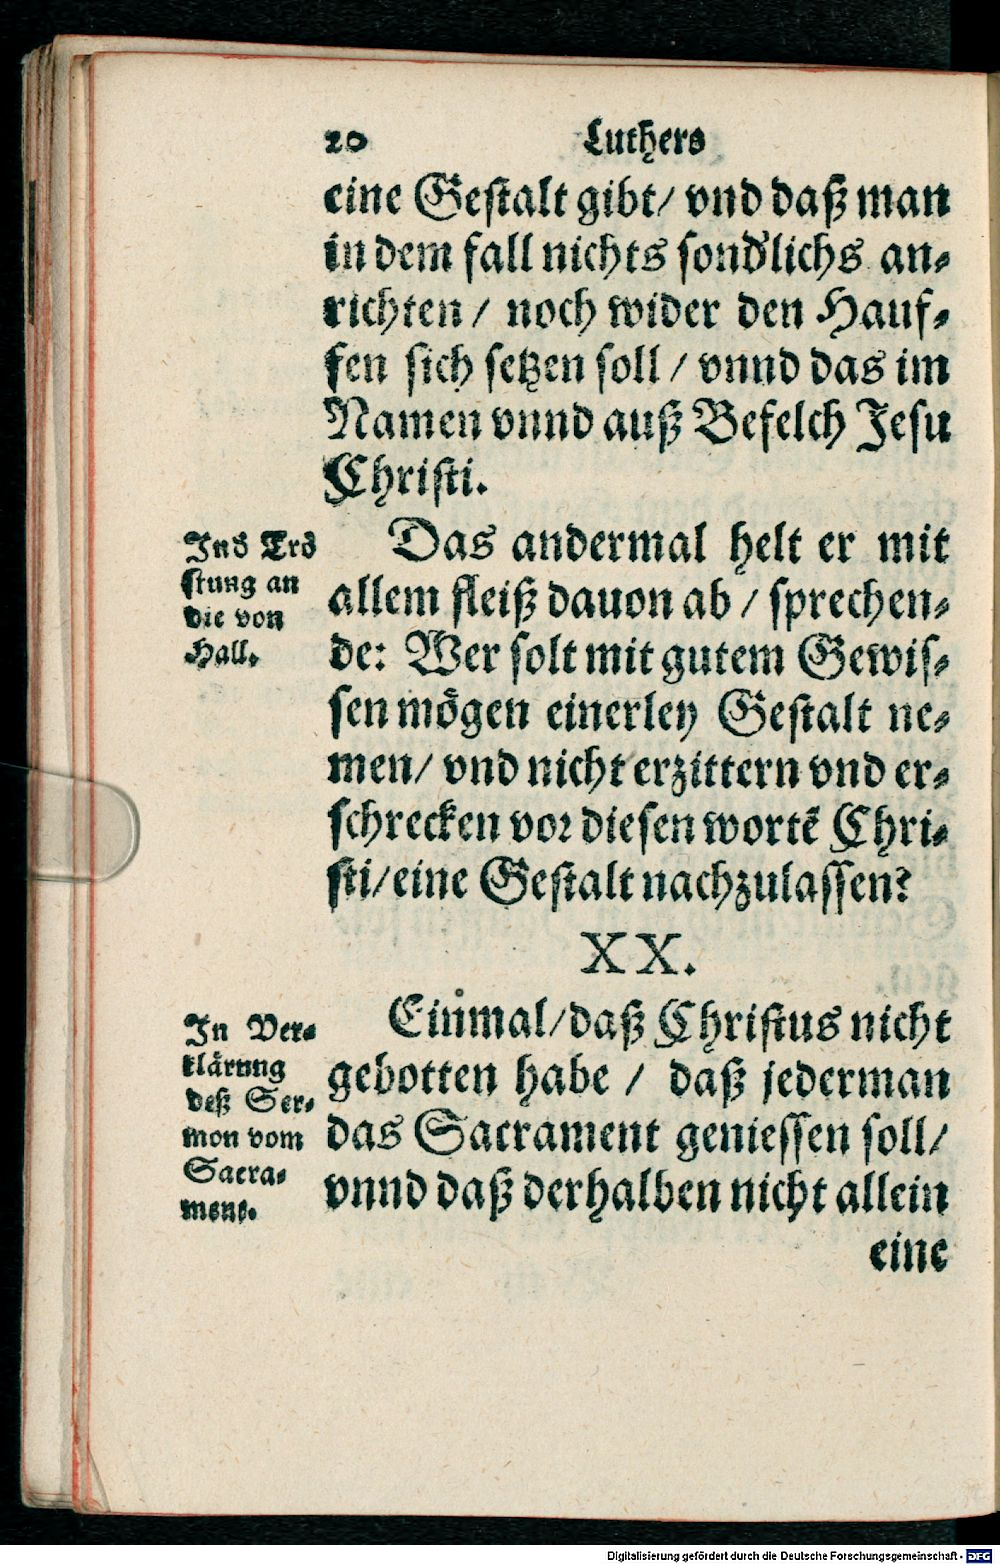 20 Luthers
eine Gestalt gibt/ vnd daß man
in dem fall nichts sond'lichs an⸗
richten / noch wider den Hauf⸗
fen sich setzen soll / vnnd das im
Namen vnnd auß Befelch Jesu
Christi.
Das andermal helt er mit
allem fleiß dauon ab / sprechen⸗
de: Wer solt mit gutem Gewis⸗
sen mögen einerley Gestalt ne⸗
men/ vnd nicht erzittern vnd er⸗
schrecken vor diesen wortē Chri⸗
sti/eine Gestalt nachzulassen?
Ins Trö
stung an
die von
Hall.
XX.
Einmal/daß Christus nicht
gebotten habe / daß jederman
das Sacrament geniessen soll/
vnnd daß derhalben nicht allein
eine
In Ver⸗
klärung
deß Ser⸗
mon vom
Sacra⸗
ment.
Digitalisierung gefördert durch die Deutsche Forschungsgemeinschaft - DFG